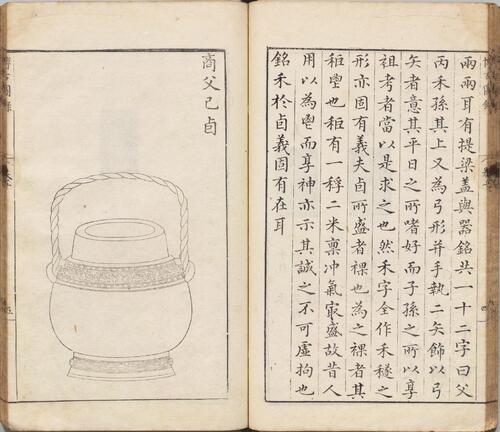 兩兩耳有提梁盖與器銘共一十二字曰父
丙禾孫其上又為弓形并手執二矢飾以弓
矢者意其平日之所嗜好而子孫之所以享
祖考者當以是求之也然禾字全作禾穟之
形亦固有義夫卣所盛者祼也為之祼者其
秬鬯也秬有一稃二米稟冲氣㝡盛故昔人
用以為鬯而享神亦示其誠之不可虛拘也
銘禾於卣義固有在耳
商父己卣